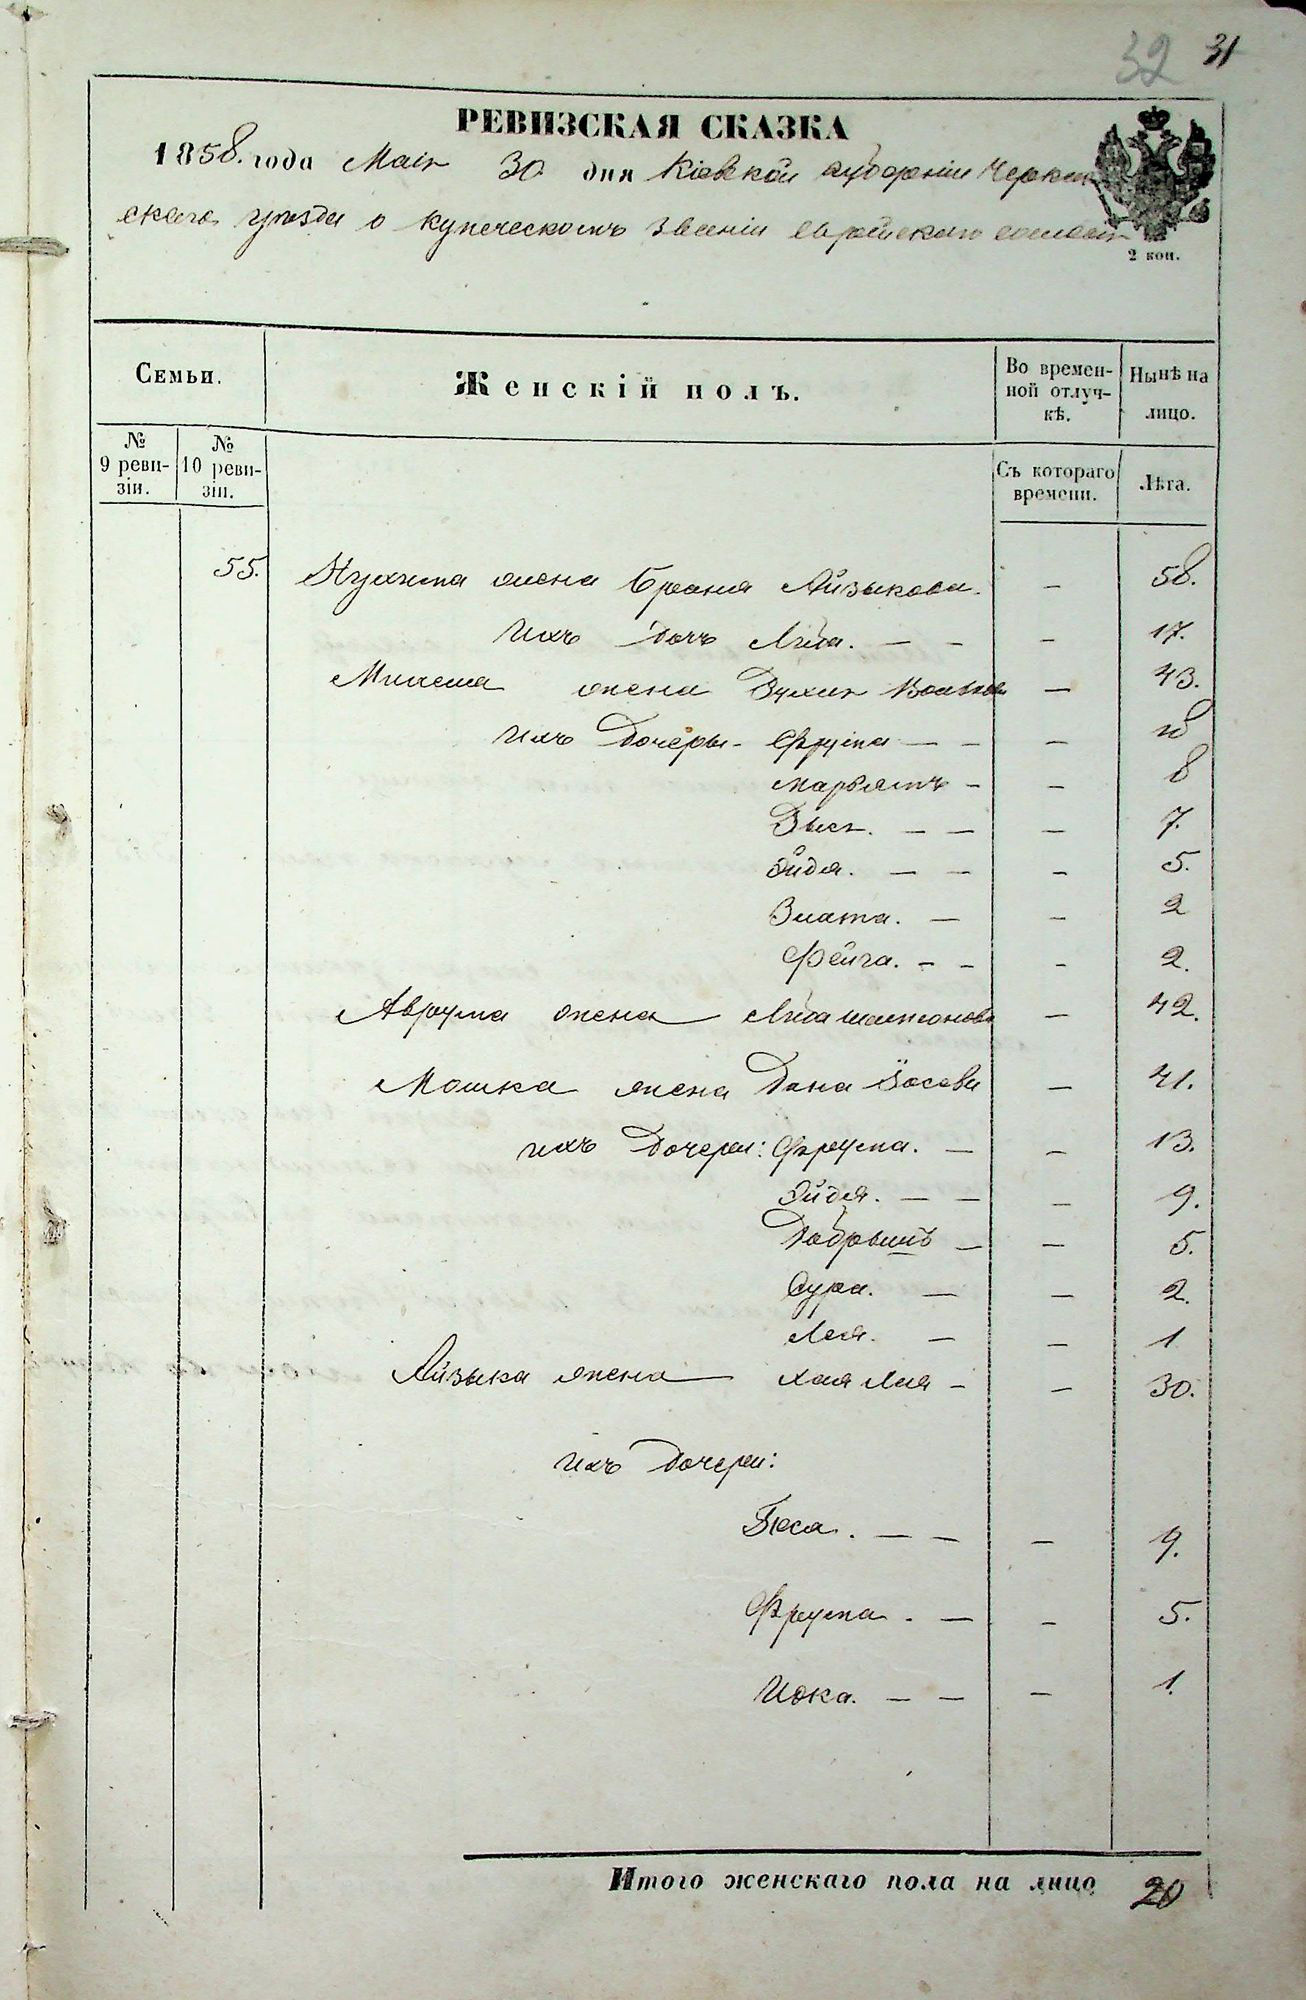 32 31
РЕВИЗСКАЯ СКАЗКА
1858. года Мая 30 дня Кіевской губерніи Черкас
скаго уѣзда о купеческомъ званіи еврейскаго
2 коп.
Семьи.
Женскій полъ.
Во времен-
ной отлуч-
кѣ.
Нынѣ на
лицо.
№
9 реви-
зіи.
№
10 реви-
зіи.
Съ котораго
времени.
Лѣта.
55. Нухима жена Броня Айзыкова. — 58.
Ихъ дочь Либа. — — — 17.
жена Вольков — 43.
Ихъ Дочеры - Фрума — — —
Марьямъ — — 8
Зыся. — — — 7.
Эйдя. — — — 5.
Злата. — — 2
Фейга. — — — 2.
Аврума жена Либа — 42.
Мошка жена Дана Іосева — 41.
ихъ Дочери: Фрума. — — 13.
Эйдя. — — — 9.
Добрышъ — — 5.
Сура. — — 2.
Лея. — — 1
Айзыка жена Хая Лея — — 30.
Ихъ Дочери:
Песа. — — — 9.
Фрума. — — 5.
Иока. — — — 1.
Итого женскаго пола на лицо 20